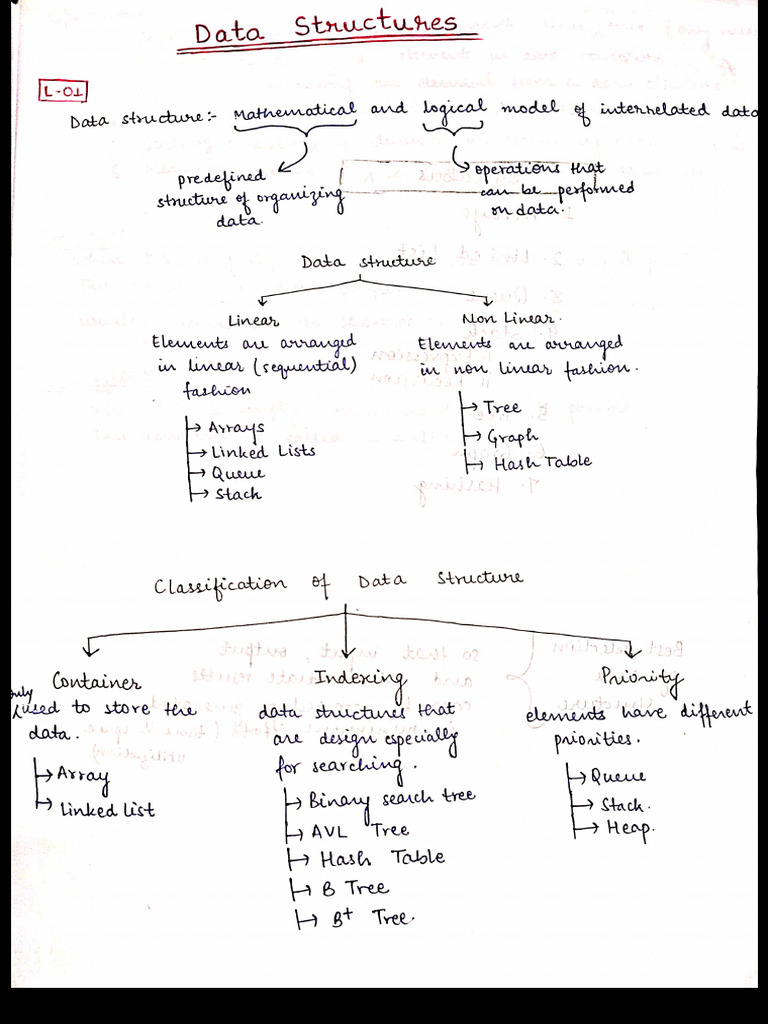 Data Structures
L-01
Data structure:- Mathematical and logical model of interrelated data
predefined
structure of organizing
data.
operations that
can be performed
on data.
Data structure
Linear
Elements are arranged
in linear (sequential)
fashion
→ Arrays
→ Linked Lists
→ Queue
→ Stack
Non Linear.
Elements are arranged
in non linear fashion.
→ Tree
→ Graph
→ Hash Table
Classification of Data Structure
Container
only used to store the
data.
→ Array
→ Linked List
Indexing
data structures that
are design especially
for searching.
→ Binary search tree
→ AVL Tree
→ Hash Table
→ B Tree
→ B+ Tree.
Priority
elements have different
priorities.
→ Queue
→ Stack.
→ Heap.